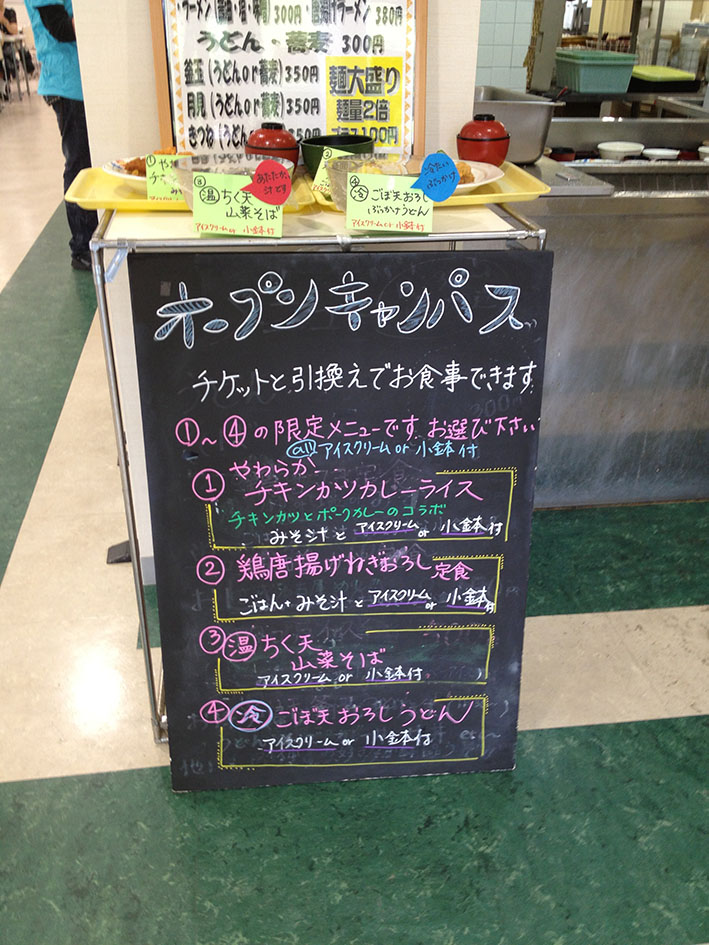 ラーメン(醤油・塩・味噌)300円・唐揚げラーメン 380円
うどん・蕎麦 300円
釜玉(うどんor蕎麦)350円
月見(うどんor蕎麦)350円
きつね(うどん 350円
麺大盛り
麺量2倍
100円
① やわ
③ 温 ちく天
山菜そば
アイスクリーム or 小鉢付
あたたかい
汁です
④ 冷 ごぼ天おろし
ぶっかけうどん
アイスクリーム or 小鉢付
冷たい
ぶっかけ
オープンキャンパス
チケットと引換えでお食事できます
①～④の限定メニューです お選び下さい
all アイスクリーム or 小鉢付
① やわらか
チキンカツカレーライス
チキンカツとポークカレーのコラボ
みそ汁 と アイスクリーム or 小鉢付
② 鶏唐揚げねぎおろし 定食
ごはん+みそ汁 と アイスクリーム or 小鉢付
③ 温 ちく天
山菜そば
アイスクリーム or 小鉢付
④ 冷 ごぼ天おろしうどん
アイスクリーム or 小鉢付